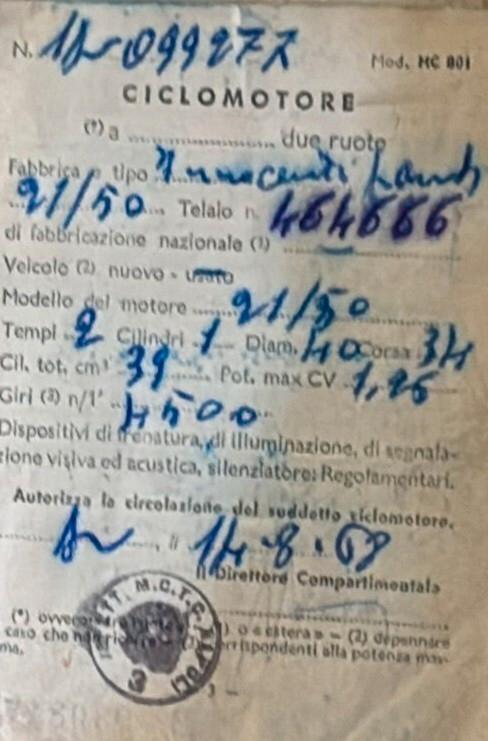 N. 099277 Mod. MC 801
CICLOMOTORE
(*) a due ruote
Fabbrica e tipo Innocenti Lamb
21/50 Telaio n. 464666
di fabbricazione nazionale (1)
Veicolo (2) nuovo - usato
Modello del motore 21/50
Tempi 2 Cilindri 1 Diam. 40 Corsa 34
Cil. tot. cm³ 39 Pot. max CV 1,26
Giri (3) n/1' 4500
Dispositivi di frenatura, di illuminazione, di segnala-
zione visiva ed acustica, silenziatore: Regolamentari.
Autorizza la circolazione del suddetto ciclomotore.
, li 14-8-68
Il Direttore Compartimentale
(*) ovvero o estera » – (2) depennare
caso che non corrispondenti alla potenza mas-
ma.
M.C.T.C. NAPOLI
3